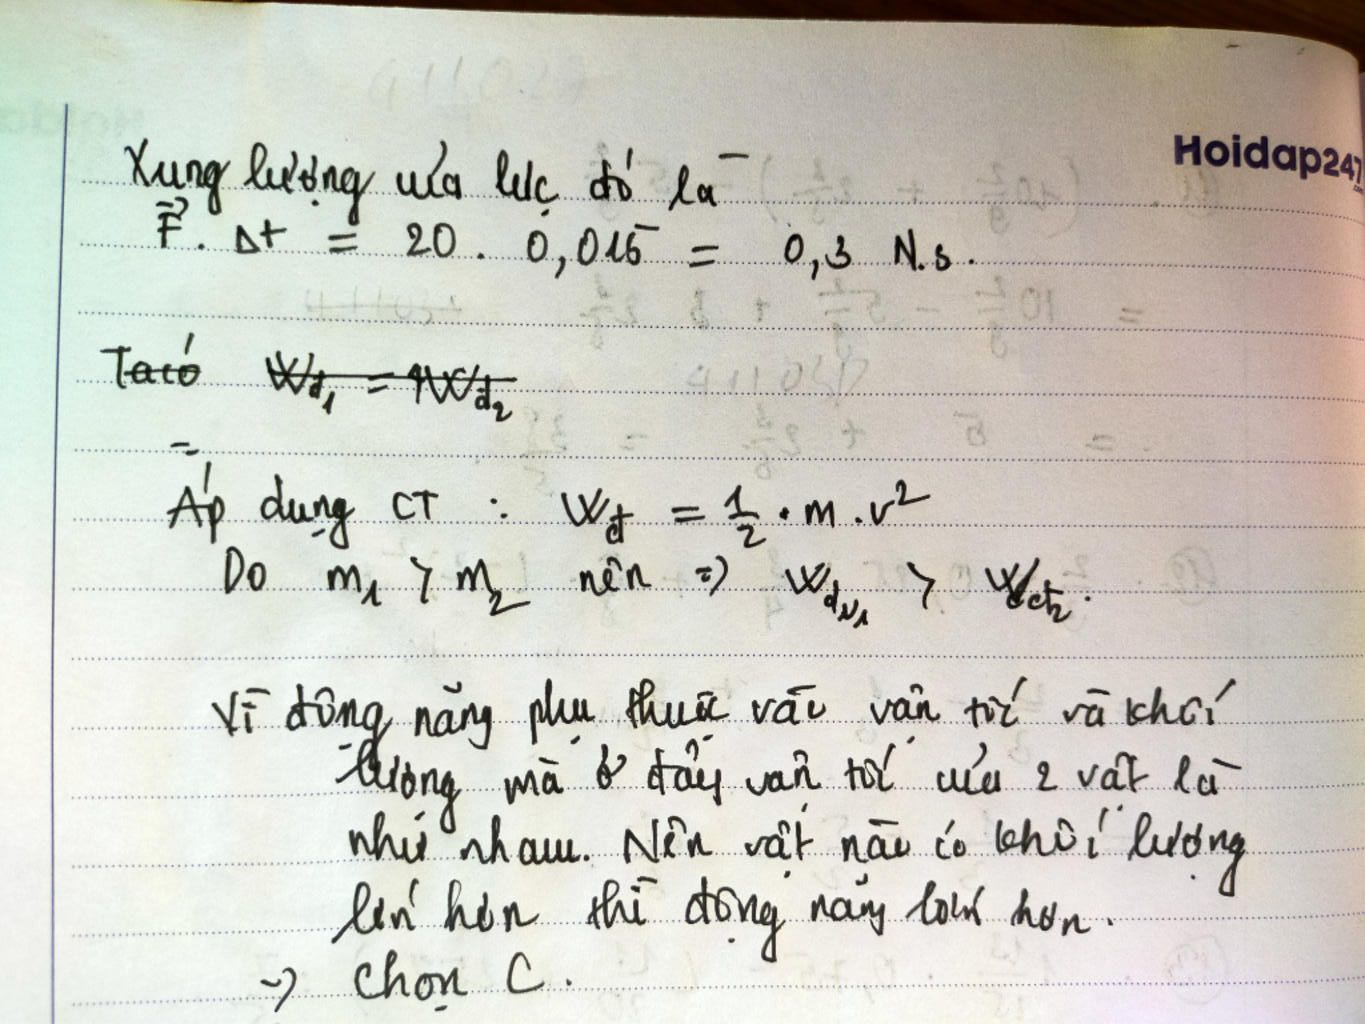 Hoidap247
Xung lượng của lực đó là
F⃗. Δt = 20 . 0,015 = 0,3 N.s.
Ta có Wđ₁ = 4Wđ₂
=
Áp dụng CT : Wđ = 1/2 . m . v²
Do m₁ > m₂ nên => Wđv₁ > Wđt₂.
Vì động năng phụ thuộc vào vận tốc và khối
lượng mà ở đây vận tốc của 2 vật là
như nhau. Nên vật nào có khối lượng
lớn hơn thì động năng lớn hơn.
-> chọn C.